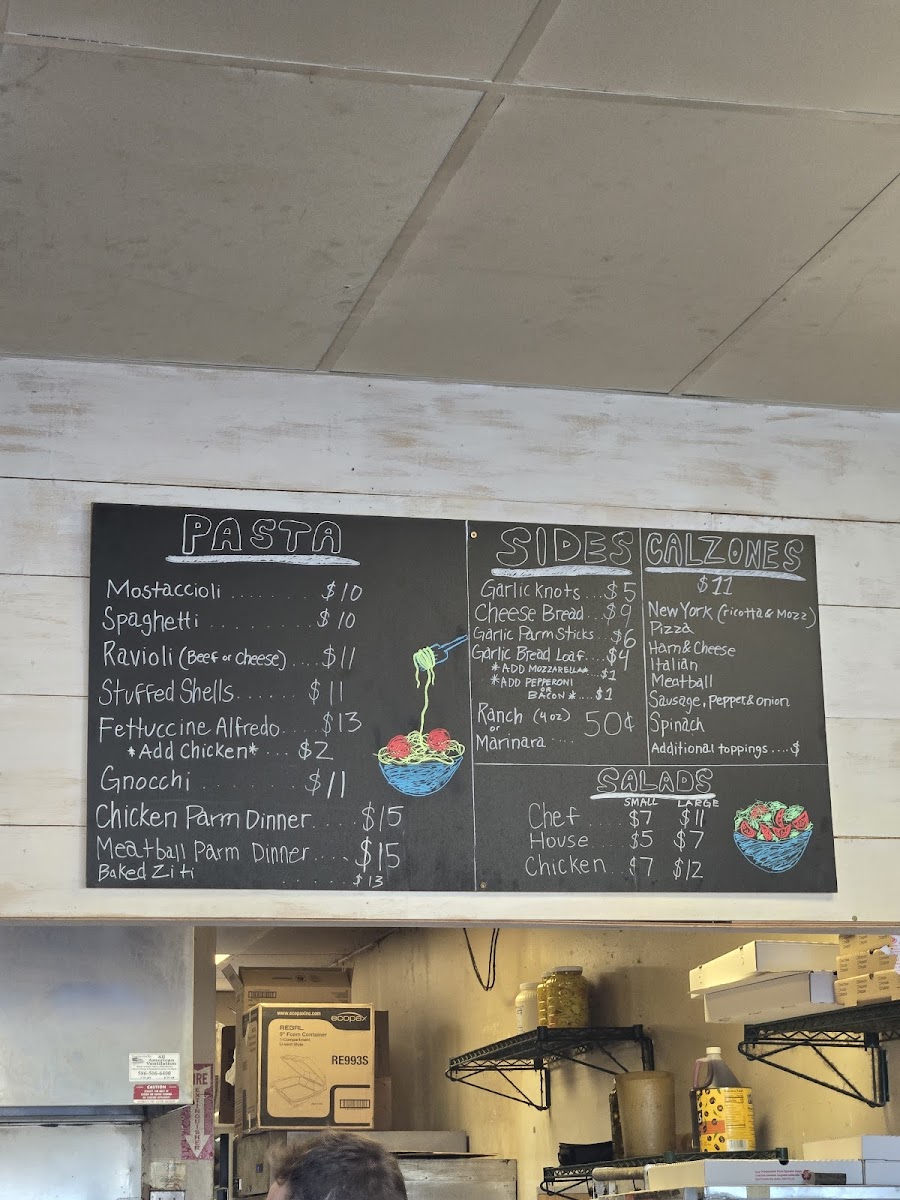 PASTA
Mostaccioli ........ $10
Spaghetti ......... $10
Ravioli (Beef or Cheese) .... $11
Stuffed Shells....... $11
Fettuccine Alfredo.... $13
*Add Chicken* ... $2
Gnocchi ......... $11
Chicken Parm Dinner.... $15
Meatball Parm Dinner.... $15
Baked Ziti ...... $13
SIDES
Garlic knots...$5
Cheese Bread...$9
Garlic Parm Sticks...$6
Garlic Bread Loaf....$4
*ADD MOZZARELLA* ...$1
*ADD PEPPERONI
OR
BACON*....$1
Ranch (4oz) 50¢
or
Marinara ....
CALZONES
$11
New York (ricotta & Mozz)
Pizza
Ham & Cheese
Italian
Meatball
Sausage, Pepper & onion
Spinach
Additional toppings....$
SALADS
SMALL LARGE
Chef .... $7 $11
House ... $5 $7
Chicken.. $7 $12
www.ecopaxinc.com ecopax
REGAL
9" Foam Container
1-Compartment
RE993S
All
American
Ventilation
586-506-6400
CAUTION
FIRE
EXTINGUISHER